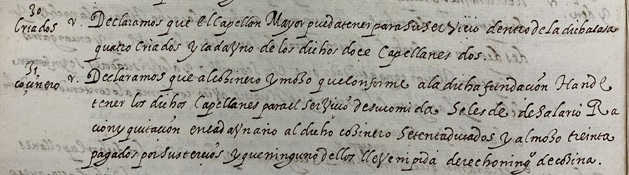 30
Criados v. Declaramos que el Capellan Mayor pueda tener para su servicio dentro de la dicha casa
quatro criados y cada vno de los dichos doce Capellanes dos.
31
coçinero v. Declaramos que al cosinero y moso que conforme a la dicha fundaçion Han de
tener los dichos Capellanes para el servicio de su comida se les de de salario Ra
cion y quitaçion en cada vn año al dicho cosinero setenta ducados y al moso treinta
pagados por sus tercios y que ninguno dellos lleve ni pida derecho ning.º de cosina.